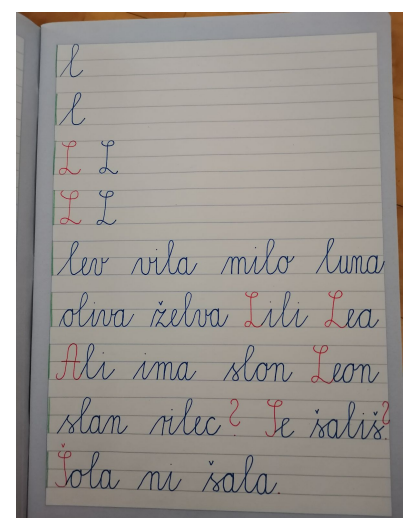 l
l
L L
L L
lev vila milo luna
oliva želva Lili Lea
Ali ima slon Leon
slan rilec? Se šališ?
Šola ni šala.